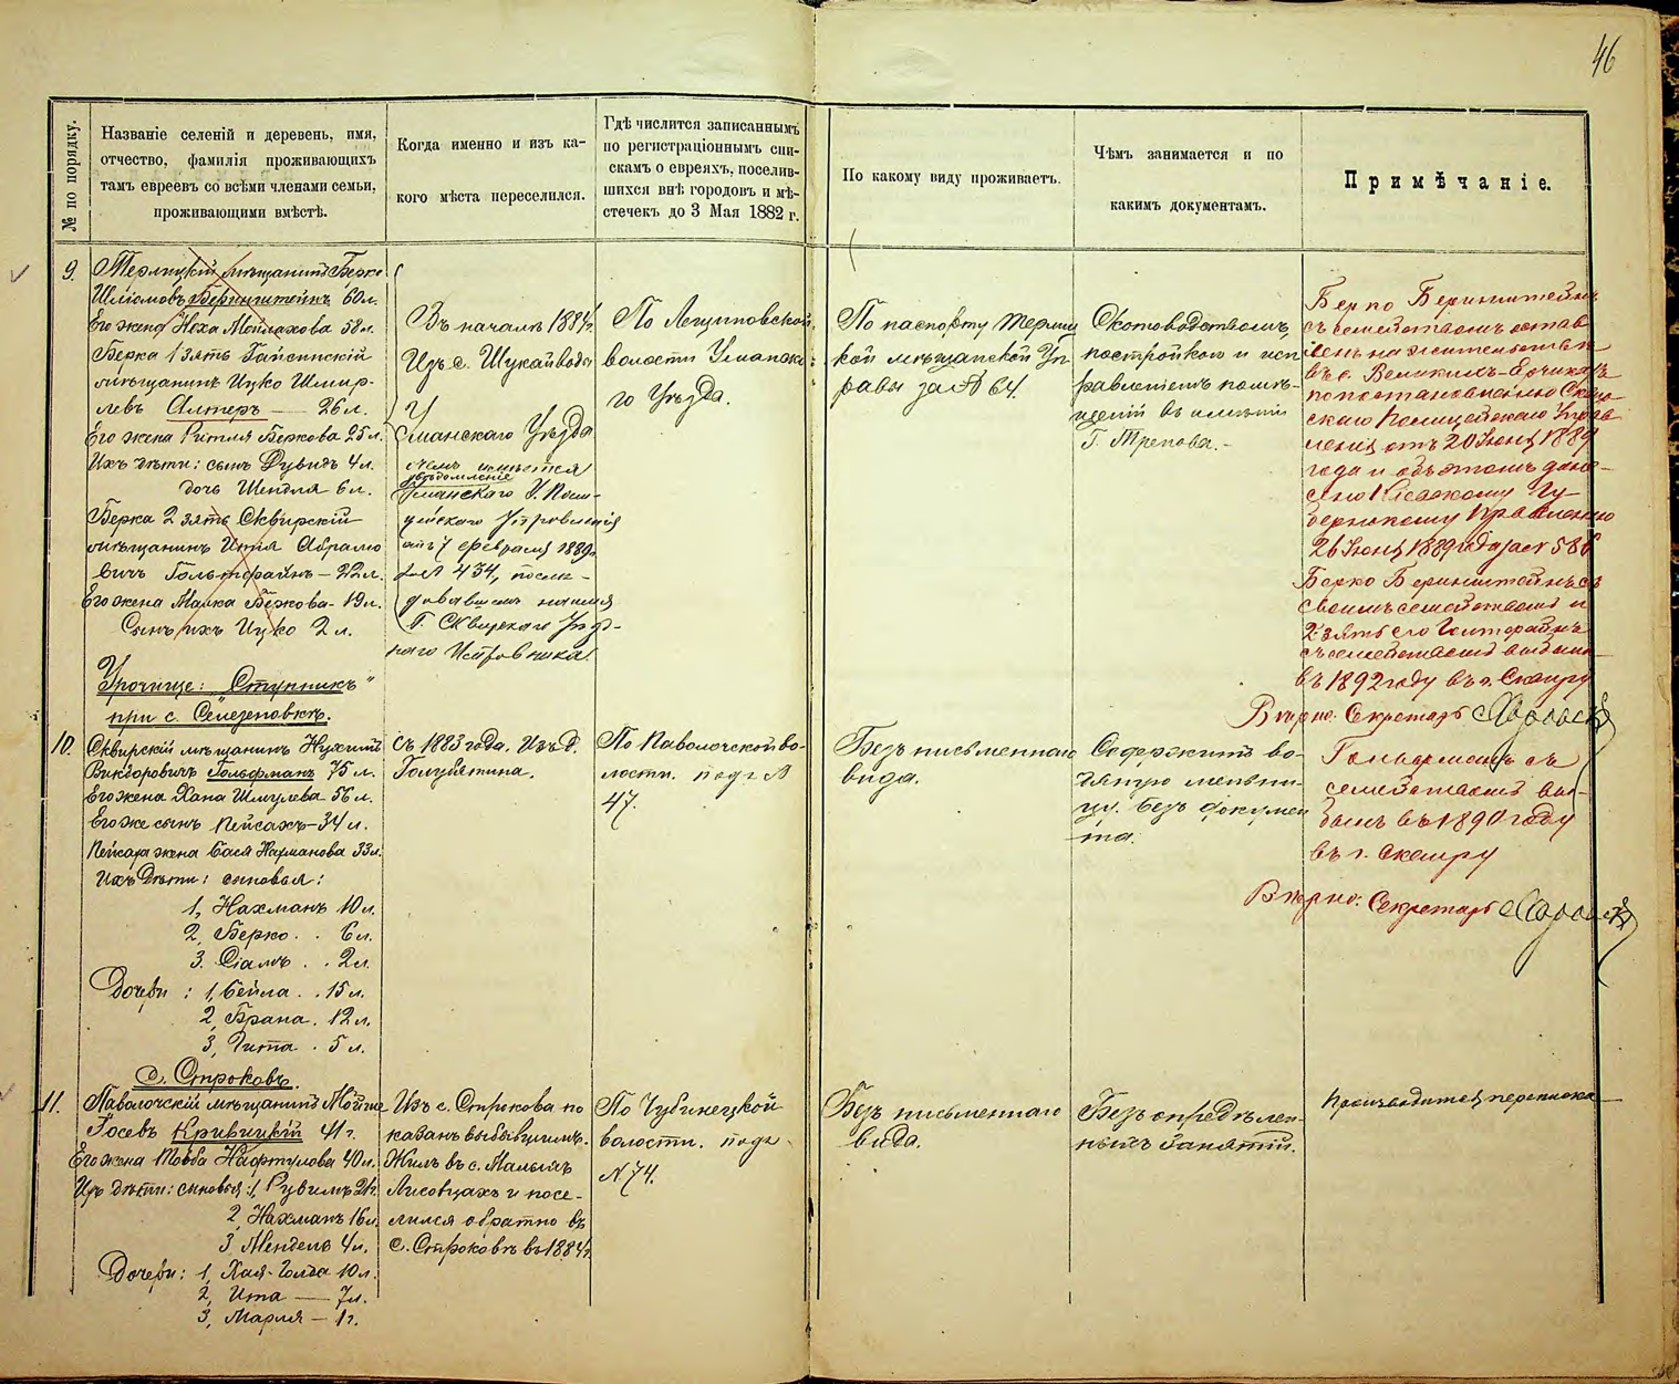 46
№ по порядку.
Названіе селеній и деревень, имя,
отчество, фамилія проживающихъ
тамъ евреевъ со всѣми членами семьи,
проживающими вмѣстѣ.
Когда именно и изъ ка-
кого мѣста переселился.
Гдѣ числится записаннымъ
по регистраціоннымъ спи-
скамъ о евреяхъ, поселив-
шихся внѣ городовъ и мѣ-
стечекъ до 3 Мая 1882 г.
По какому виду проживаетъ.
Чѣмъ занимается и по
какимъ документамъ.
Примѣчаніе.
9.
мѣщанинъ Берко
Шліомовъ Беринштейнъ 60 л.
Его жена Неха 58 л.
Берка 1 зять Гайсинскій
мѣщанинъ Ицко Шмир-
левъ Алтеръ — 26 л.
Его жена Ритля Беркова 25 л.
Ихъ дѣти: сынъ Дувидъ 4 л.
дочь Шендля 6 л.
Берка 2 зять Сквирскій
мѣщанинъ Абрамо
вичъ — 22 л.
Его жена Малка Беркова - 19 л.
Сынъ ихъ Ицко 2 л.
Въ началѣ 1884 г.
Изъ с. Шукайвода
У
манскаго Уѣзда
о чемъ имѣется
увѣдомленіе
Уманскаго У. Поли-
цейскаго Управленія
отъ 7 февраля 1889 г.
за № 434, послѣ-
довавшемъ на имя
Г. Сквирскаго Уѣзд-
наго Исправника.
По
волости Уманска-
го Уѣзда.
По паспорту
кой мѣщанской Уп
равы за № 64.
Скотоводствомъ,
постройкою и исп
равленіемъ помѣ-
щеній въ имѣніи
Г. Трепова.-
Берко Беринштейнъ
съ семействомъ остав
ленъ на жительствѣ
въ с. Великихъ-Ерчикахъ
по постановленію Сквир-
скаго Полицейскаго Управ
ленія отъ 20 Іюня 1889
года и объ этомъ доне-
сено Кіевскому Гу-
бернскому Правленію
26 Іюня 1889 года за №
Берко Беринштейнъ съ
своимъ семействомъ и
2 зять его
съ семействомъ выбыли
въ 1892 году въ г. Сквиру
Вѣрно: Секретарь
Урочище: „Ступникъ"
при с. Селезеновкѣ.
10.
Сквирскій мѣщанинъ Нухимъ
Викдоровичъ Гольфманъ 75 л.
Его жена Хана Шмулева 56 л.
Его же сынъ Пейсахъ - 34 л.
Пейсаха жена Бася Нахманова 33 л.
Ихъ дѣти: сыновья:
1, Нахманъ 10 л.
2, Берко . . 6 л.
3. Сіамъ . . 2 л.
Дочери: 1, Бейла . . 15 л.
2, Брана . 12 л.
3, Гитта . 5 л.
Съ 1883 года. Изъ д.
Голубятина.
По Паволочской во-
лости. подъ №
47.
Безъ письменнаго
вида.
Содержитъ во-
дяную мельни-
цу. безъ докумен
та.
Гольфманъ съ
семействомъ вы-
былъ въ 1890 году
въ г. Сквиру
Вѣрно: Секретарь
с. Строковъ.
11.
Паволочскій мѣщанинъ Мойше
Іосевъ Кривицкій 41 г.
Его жена Товба Нафтулова 40 л.
Ихъ дѣти: сыновья: 1, Рувимъ 21 г.
2, Нахманъ 16 л.
3, Мендель 4 л.
Дочери: 1, Хая-Голда 10 л.
2, Ита — 7 л.
3, Марія — 1 г.
Изъ с. Строкова по
казанъ выбывшимъ.
Жилъ въ с. Малыхъ
Лисовцахъ и посе-
лился обратно въ
с. Строковѣ въ 1884 г.
По Чубинецкой
волости. подъ
№ 74.
Безъ письменнаго
вида.
Безъ опредѣлен-
ныхъ занятій.
Производится переписка